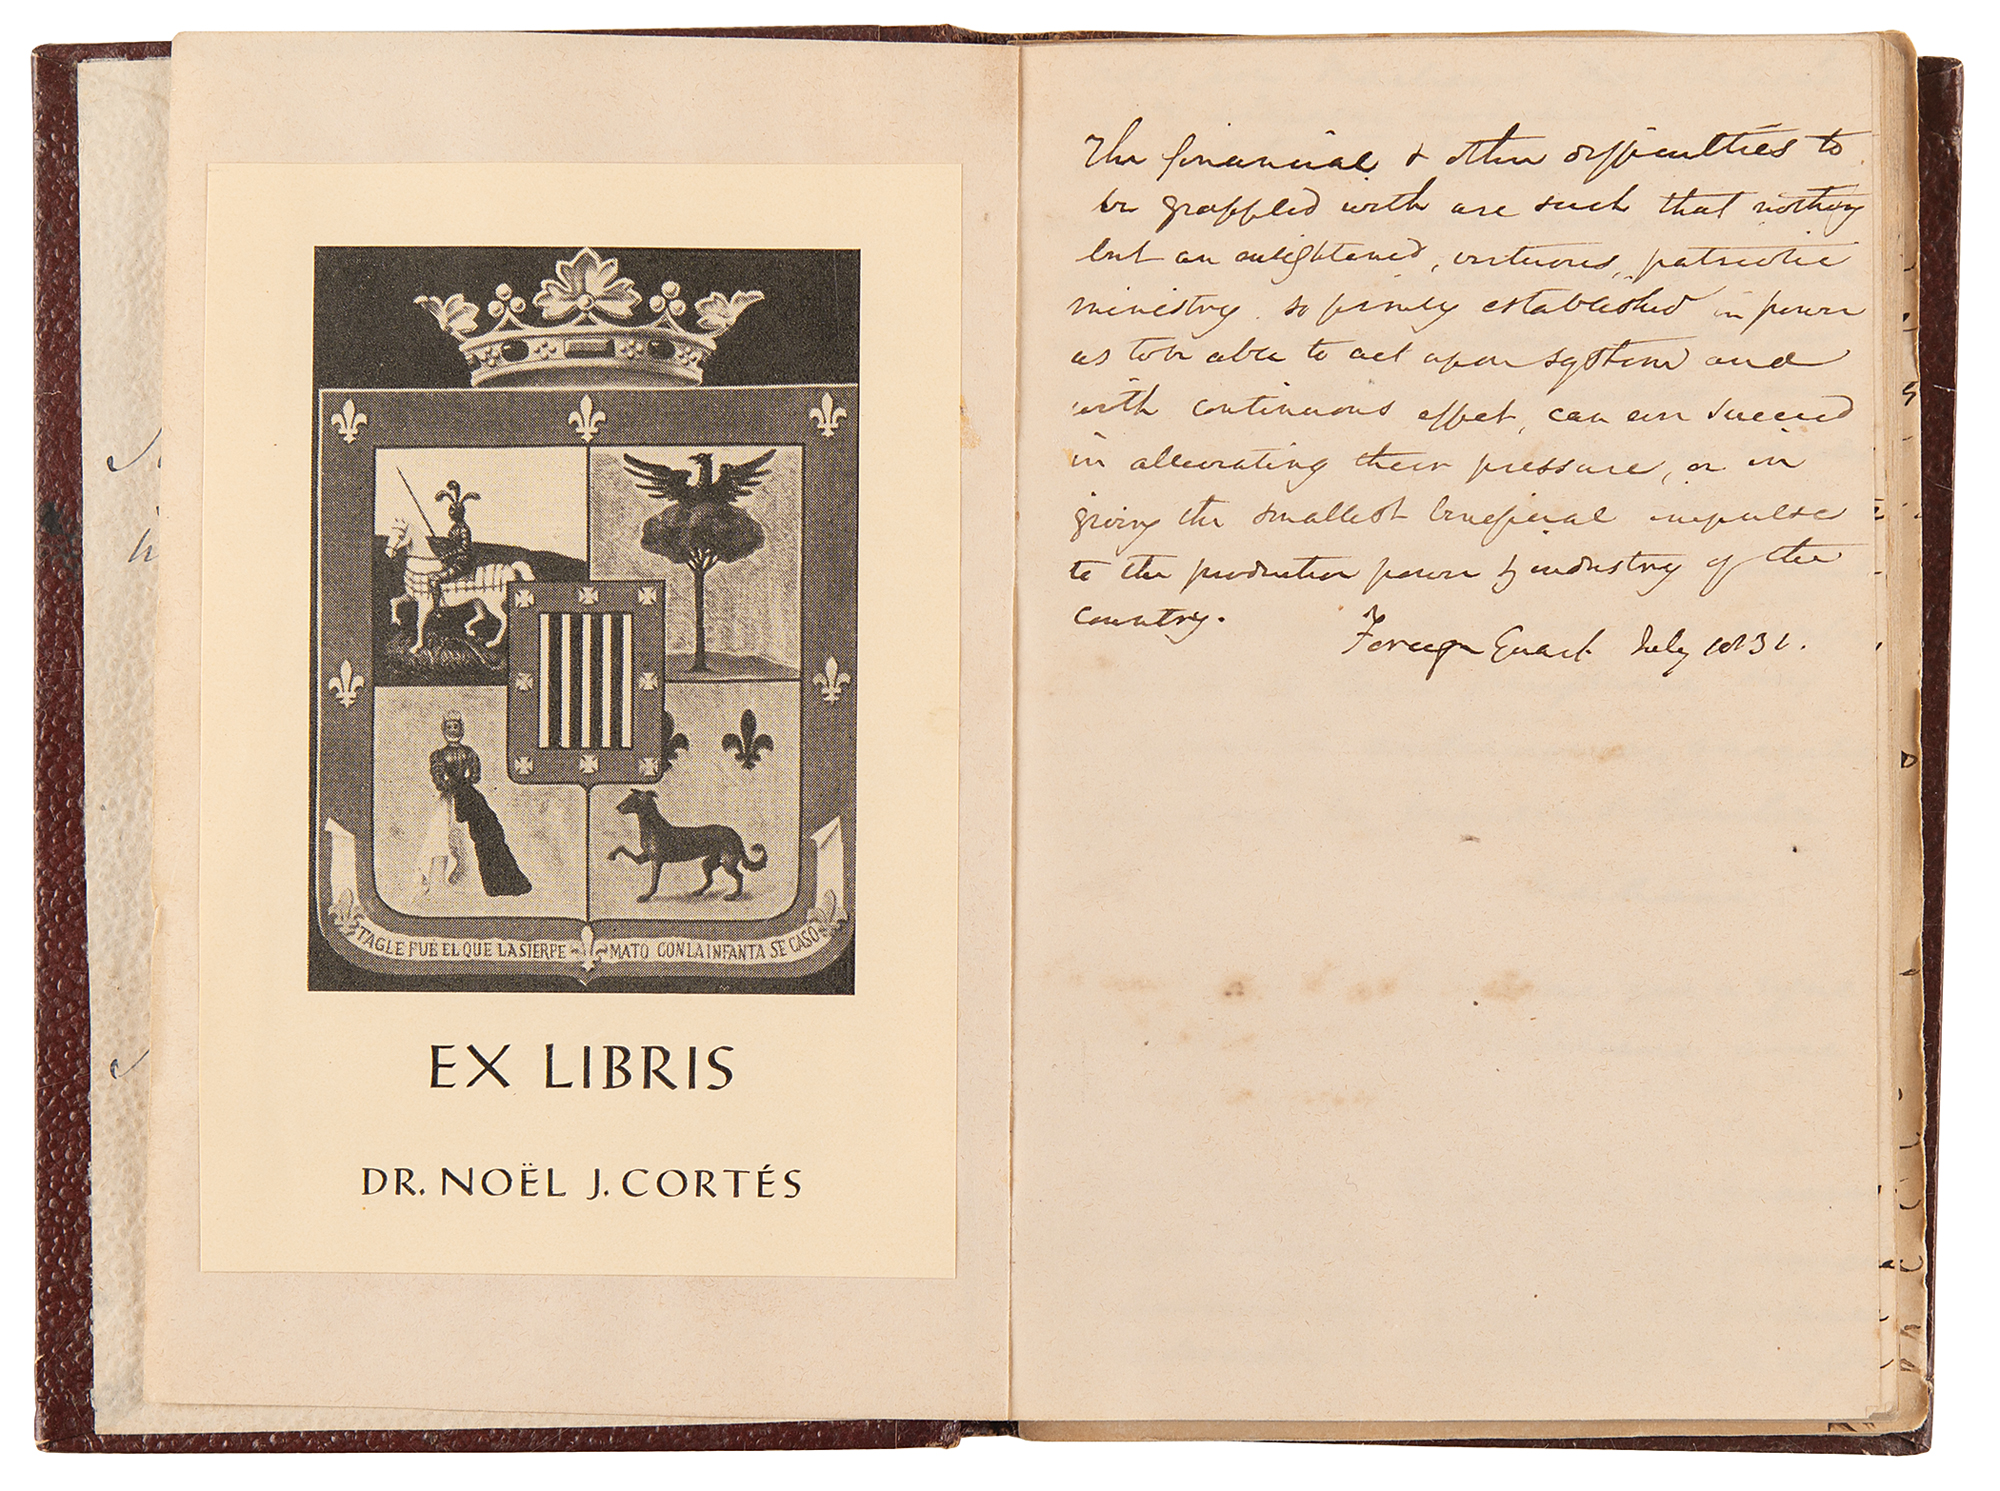 TAGLE FUE EL QUE LA SIERPE MATO CON LA INFANTA SE CASÓ
EX LIBRIS
DR. NOËL J. CORTÉS
The financial & other difficulties to
be grappled with are such that nothing
but an enlightened, virtuous, patriotic
ministry so firmly established in power
as to be able to act upon system and
with continuous effect, can ever succeed
in alleviating their pressure, or in
giving the smallest beneficial impulse
to the productive power & industry of the
country.
Foreign Quart July 1831.